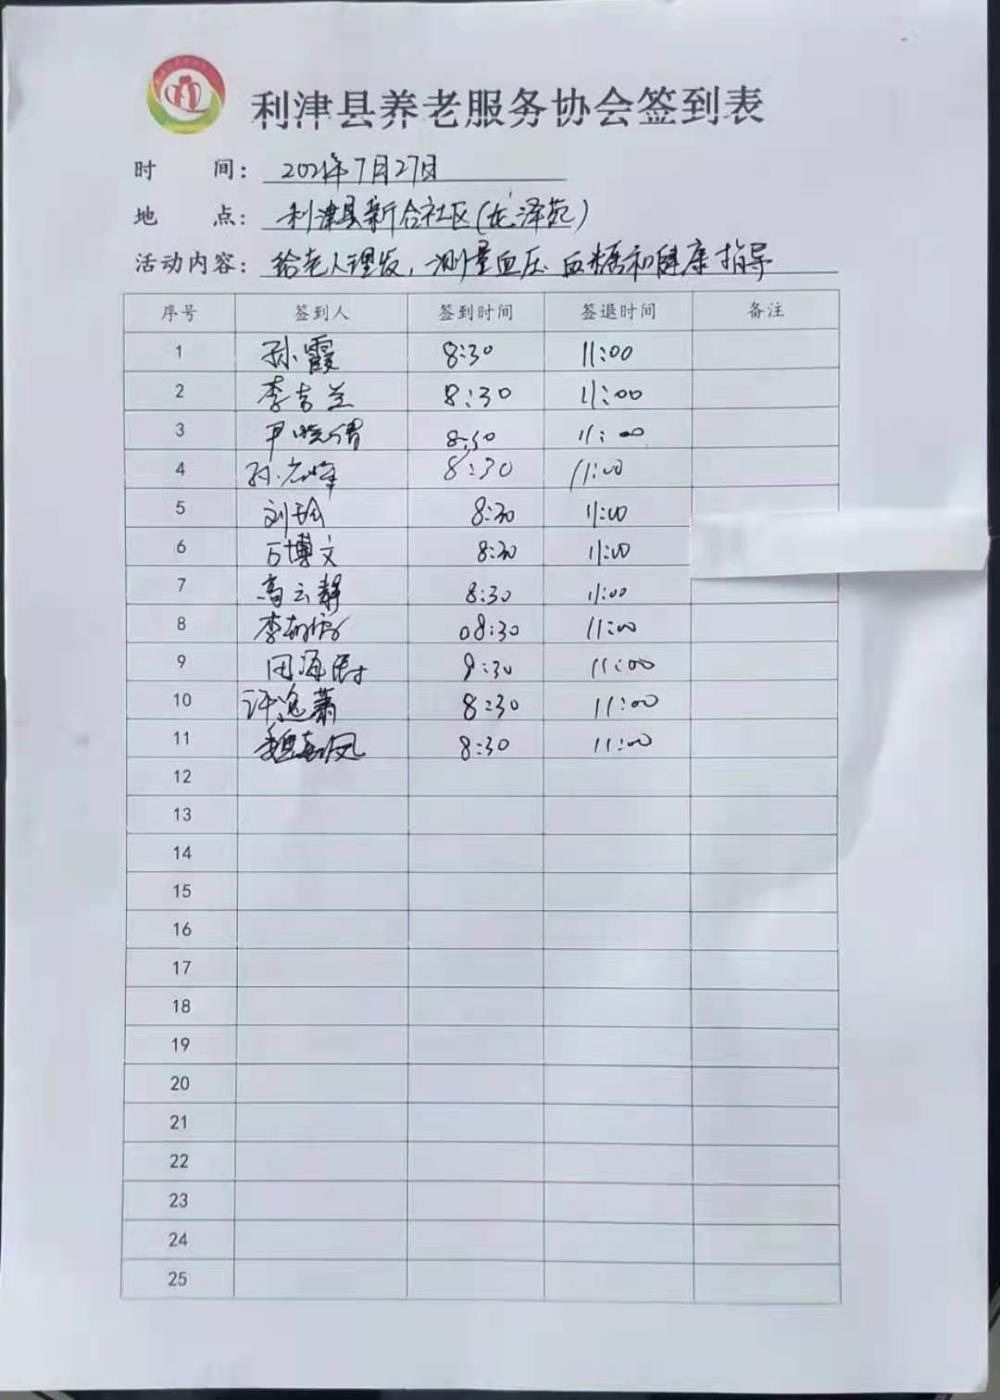 利津县养老服务协会签到表
时 间: 2021年7月27日
地 点: 利津县新合社区(龙泽苑)
活动内容: 给老人理发,测量血压、血糖和健康指导
序号 签到人 签到时间 签退时间 备注
1 孙霞 8:30 11:00
2 李吉兰 8:30 11:00
3 8:30 11:00
4 8:30 11:00
5 刘玲 8:30 11:00
6 万博文 8:30 11:00
7 高云静 8:30 11:00
8 08:30 11:00
9 田海 11:00
10 许逸萧 8:30 11:00
11 8:30 11:00
12
13
14
15
16
17
18
19
20
21
22
23
24
25